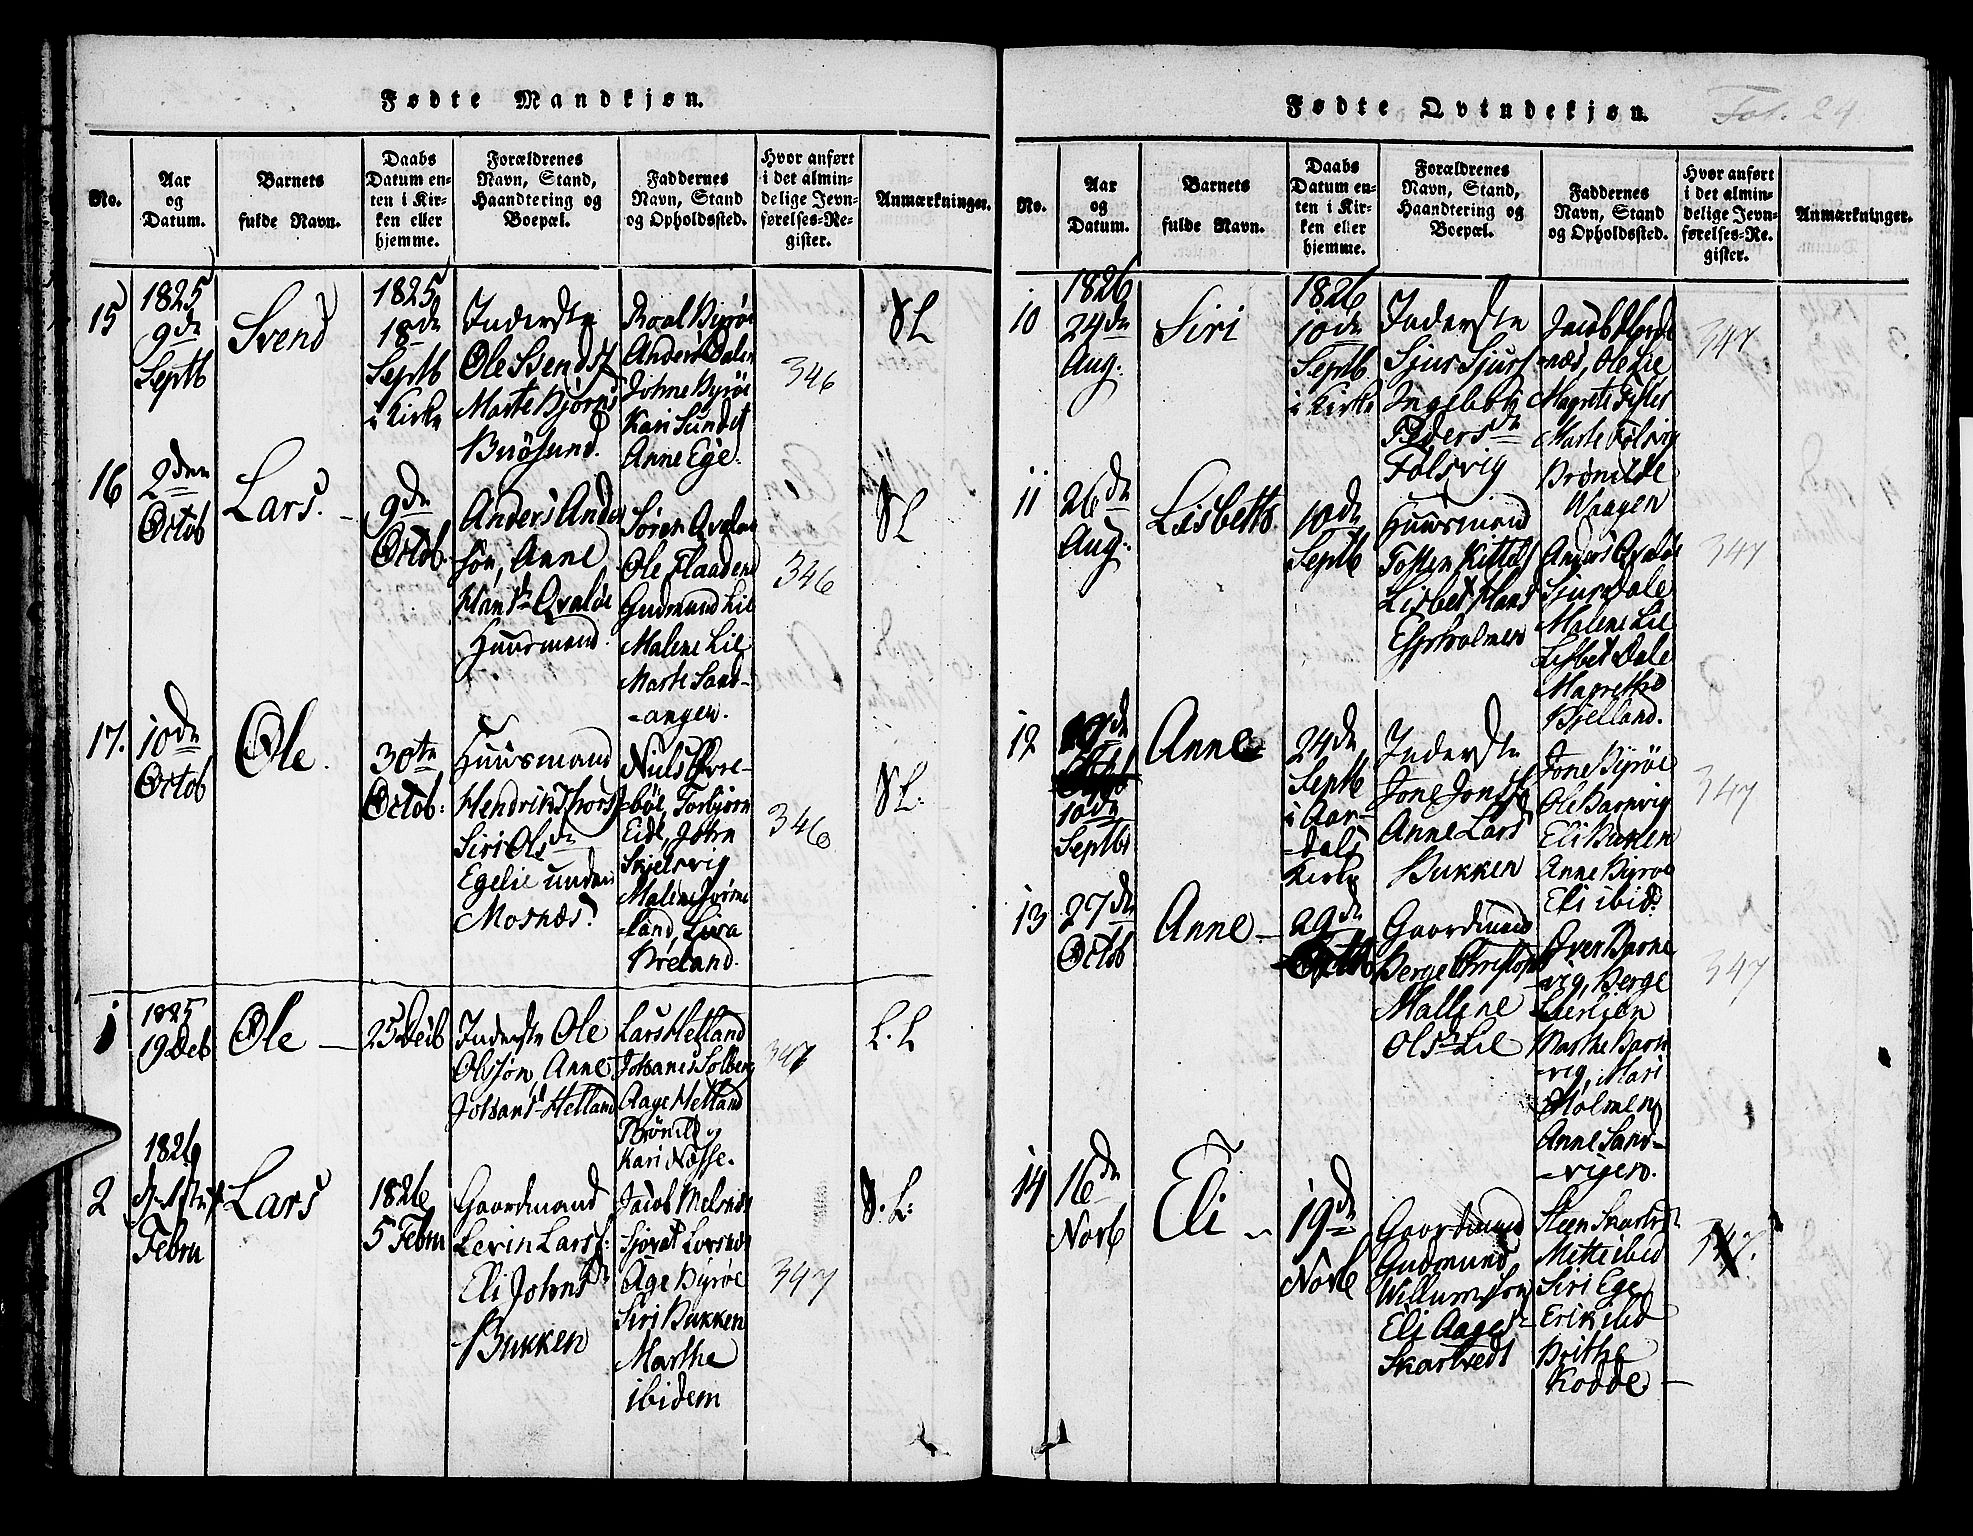 Fødte Mandkjøn.
No.
Aar
og
Datum.
Barnets
fulde Navn.
Daabs
Datum en-
ten i Kir-
ken eller
hjemme.
Forældrenes
Navn, Stand,
Haandtering og
Boepæl.
Faddernes
Navn, Stand
og Opholdssted.
Hvor anført
i det almin-
delige Jevn-
førelses-Re-
gister.
Anmærkninger.
15
1825
9de
Septb
Svend
1825
18de
Septb
i Kirke
Inderste
Ole Svends
Marte Bjørns
Buøsund.
Roal Byrøe
Anders Dalen
Johne Byrøe
Kari Sund
Anne Ege.
346
16
2den
Octob
Lars.
9de
Octob.
Anders Ander
søn, Anne
Hansd Qvaløe
Huusmand.
Søren Qvaløe
Ole Flaadene
Gudmund Lie
Malene Lie
Marte Sand-
-angen.
346
17.
10de
Octob
Ole.
30te
Octob:
Huusmand
Hendrik Thors
Siri Olsdr
Egelie under
Mosnæs.
Niels
-bøe, Torbjørn
Eide, John
Skjelsvig
Malene
-land, Siva
Breland.
346
1
1825
19 Deb
Ole
25 Deib
Inderste Ole
Olssøn, Anne
Johansd Helland
Lars Helland
Johanes Solberg
Aage Helland
Brønild og
Kari Næsse.
347
L. L
2
1826
Febru
Lars
1826
5 Febru
Gaardmand
Levin Larss:
Eli Johnsdr
Bukken
Jacob Melsnæs
Age Byrøe
Siri Bukken
Marthe
ibidem
347
Fødte Qvindekjøn.
Fol. 24
No.
Aar
og
Datum.
Barnets
fulde Navn.
Daabs
Datum en-
ten i Kir-
ken eller
hjemme.
Forældrenes
Navn, Stand,
Haandtering og
Boepæl.
Faddernes
Navn, Stand
og Opholdssted.
Hvor anført
i det almin-
delige Jevn-
førelses-Re-
gister.
Anmærkninger.
10
1826
24de
Aug.
Siri
1826
10de
Septb
i Kirke
Inderste
Sjur Sjurs
Ingebb
Pedersdr
Følsvig
-næs, Ole Lie
Marte Følsvig
Brønilde
Waagen
347
11
26de
Aug.
Lisbeth.
10de
Septb
Huusmand
Tosten Kittels
Lisbet Hans
Espholmen
Anders Qvaløe
Sjur Dale
Malene Lie
Lisbet Dale
Magrethe
Bjelland.
347
12
10de
Septb
Anne
24de
Septb
i Aar-
-dals
Kirke
Inderste
Jone Jons
Anne Larsd
Bukken
Jone Byrøe
Ole Barnvig
Eli Bukken
Anne Byrøe
Eli ibid:
347
13
27de
Octob
Anne
29de
Gaardmand
Berge Christoph
Mallene
Olsdr Lie
Barne
-vig, Berge
Marthe Barn
-vig, Mari
Holmen
Anne Sand-
-vigen.
347
14
16de
Novb
Eli
19de
Novb
Gaardmand
Gudmund
Willumsøn
Eli Aagesdr
Skartvedt
Steen Skartvedt
Mette ibid
Siri Ege
Erik ibid
Brithe
Kodde
347.